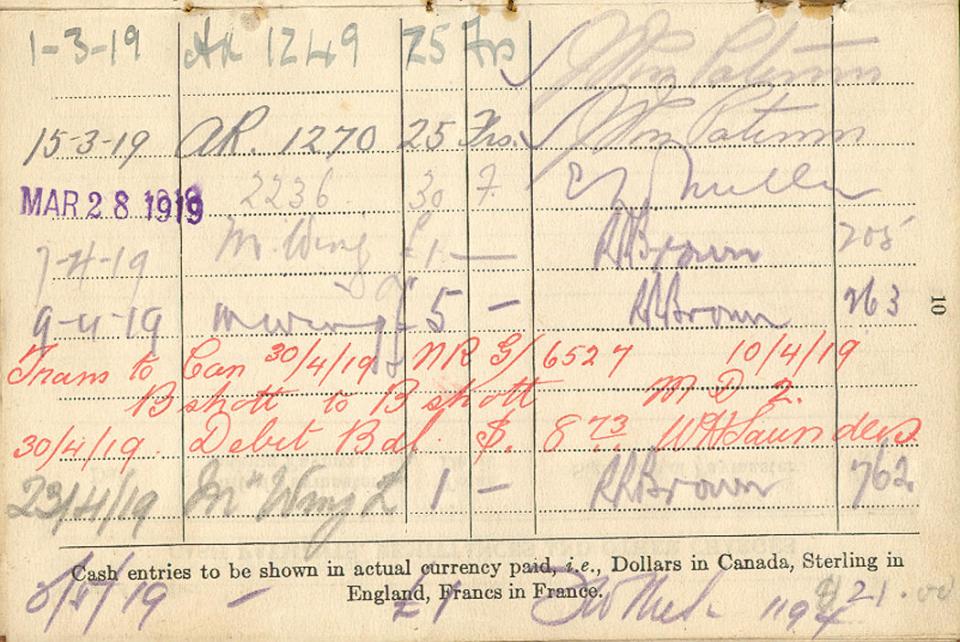 1-3-19 AR 1249 25 Frs Wm Paterson
15-3-19 AR. 1270 25 Frs. Wm Paterson
MAR 28 1919 2236 30 F.
7-4-19 M. Wing £1 — RRBrown 705
9-4-19 M Wing £5 — RRBrown 763
Trans to Can 30/4/19 NR G/ 6527 10/4/19
B shott to B shott M D 2.
30/4/19. Debit Bal. $. 8 73 WHSaunders
23/4/19 M Wing £ 1 — RRBrown 762
Cash entries to be shown in actual currency paid, i.e., Dollars in Canada, Sterling in
England, Francs in France.
/19 — £1 21.00
10